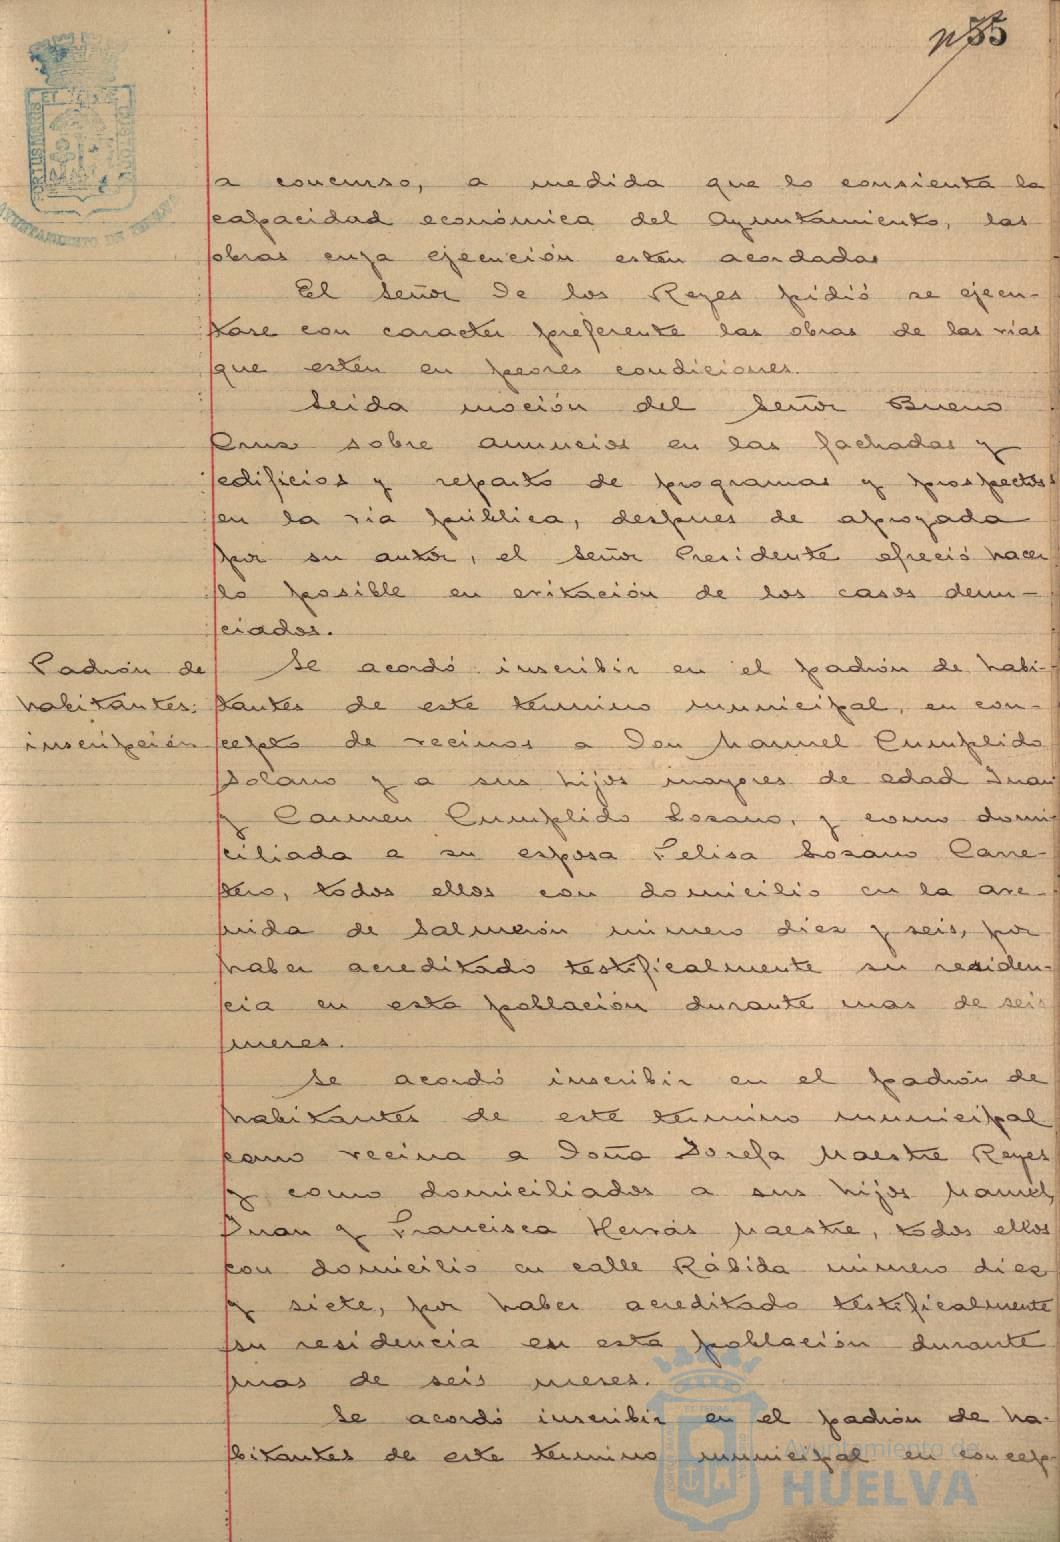 nº 35
PORTUS MARIS ET TERRE CUSTODIA
AYUNTAMIENTO DE HUELVA
a concurso, a medida que lo consienta la
capacidad económica del Ayuntamiento, las
obras cuya ejecución esten acordadas
El Señor De los Reyes pidió se ejecu-
tase con caracter preferente las obras de las vias
que esten en peores condiciones.
Leida moción del Señor Bueno
Cruz sobre anuncios en las fachadas y
edificios y reparto de programas y prospectos
en la via pública, despues de apoyada
por su autor, el Señor Presidente ofreció hacer
lo posible en evitación de los casos denun-
ciados.
Padrón de
habitantes:
inscripción
Se acordó inscribir en el padrón de habi-
tantes de este termino municipal, en con-
cepto de vecinos a Don Manuel Cumplido
Solano y a sus hijos mayores de edad Juan
y Carmen Cumplido Lozano, y como domi-
ciliada a su esposa Felisa Lozano Carre-
tero, todos ellos con domicilio en la ave-
nida de Salmerón número diez y seis, por
haber acreditado testificalmente su residen-
cia en esta población durante mas de seis
meses.
Se acordó inscribir en el padrón de
habitantes de este termino municipal
como vecina a Doña Josefa Maestre Reyes
y como domiciliados a sus hijos Manuel,
Juan y Francisca Herrás Maestre, todos ellos
con domicilio en calle Rábida número diez
y siete, por haber acreditado testificalmente
su residencia en esta población durante
mas de seis meses.
Se acordó inscribir en el padrón de ha-
bitantes de este termino municipal en concep-
Ayuntamiento de
HUELVA